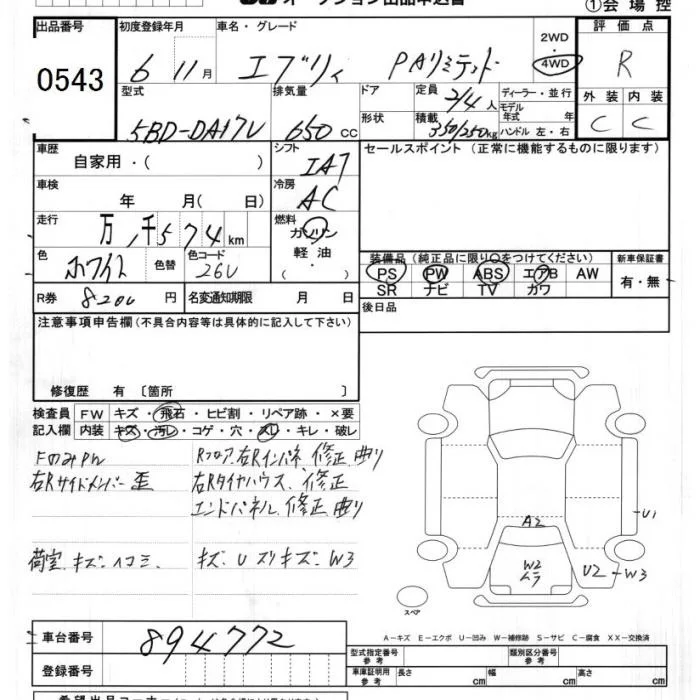 オークション出品申込書
①会場控
出品番号
0543
初度登録年月
6 11月
車名・グレード
エブリィ PAリミテッド
2WD
・
4WD
評価点
R
外装 内装
C C
型式
5BD-DA17V
排気量
650 CC
ドア
形状
定員 2/4人
積載 350/250kg
ディーラー・並行
モデル
年式 年
ハンドル 左・右
車歴
自家用・( )
シフト
IAT
セールスポイント(正常に機能するものに限ります)
車検
年 月(日)
冷房
AC
走行
万 千574km
燃料
ガソリン
・
軽油
・
( )
色
ホワイト
色替
色コード
26U
装備品(純正品に限り○をつけてください)
PS PW ABS エアB AW
SR ナビ TV カワ
新車保証書
有・無
R券 8200 円
名変通知期限 月 日
後日品
注意事項申告欄(不具合内容等は具体的に記入して下さい)
修復歴 有〔箇所 〕
検査員
記入欄
FW キズ・飛石・ヒビ割・リペア跡・×要
内装 キズ・汚レ・コゲ・穴・スレ・キレ・破レ
FのみPW
右Rサイドメンバー 歪
Rフロア、右Rインパネ、修正、曲り
右Rタイヤハウス、修正
エンドパネル、修正 曲り
荷室、キズ・ヘコミ、
キズ、U ズリキズ・W3
A2
W2
ムラ
U1
U2-W3
スペア
A-キズ E-エクボ U-凹み W-補修跡 S-サビ C-腐食 XX-交換済
車台番号
894772
登録番号
型式指定番号
参考
類別区分番号
参考
車庫証明用
参考
長さ cm
幅 cm
高さ cm